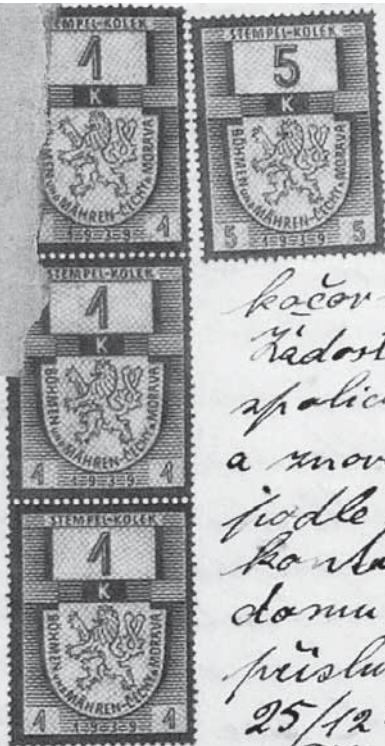 STEMPEL-KOLEK
1
K
BÖHMEN UND MÄHREN-ČECHY A MORAVA
1-9-3-9 1
STEMPEL-KOLEK
5
K
BÖHMEN UND MÄHREN-ČECHY A MORAVA
5 1-9-3-9 5
STEMPEL-KOLEK
1
K
BÖHMEN UND MÄHREN-ČECHY A MORAVA
1 1-9-3-9 1
STEMPEL-KOLEK
1
K
BÖHMEN UND MÄHREN-ČECHY A MORAVA
1 1-9-3-9 1
kočov
Žádost
spolic
a znov
podle
konta
domu
příslu
25/12